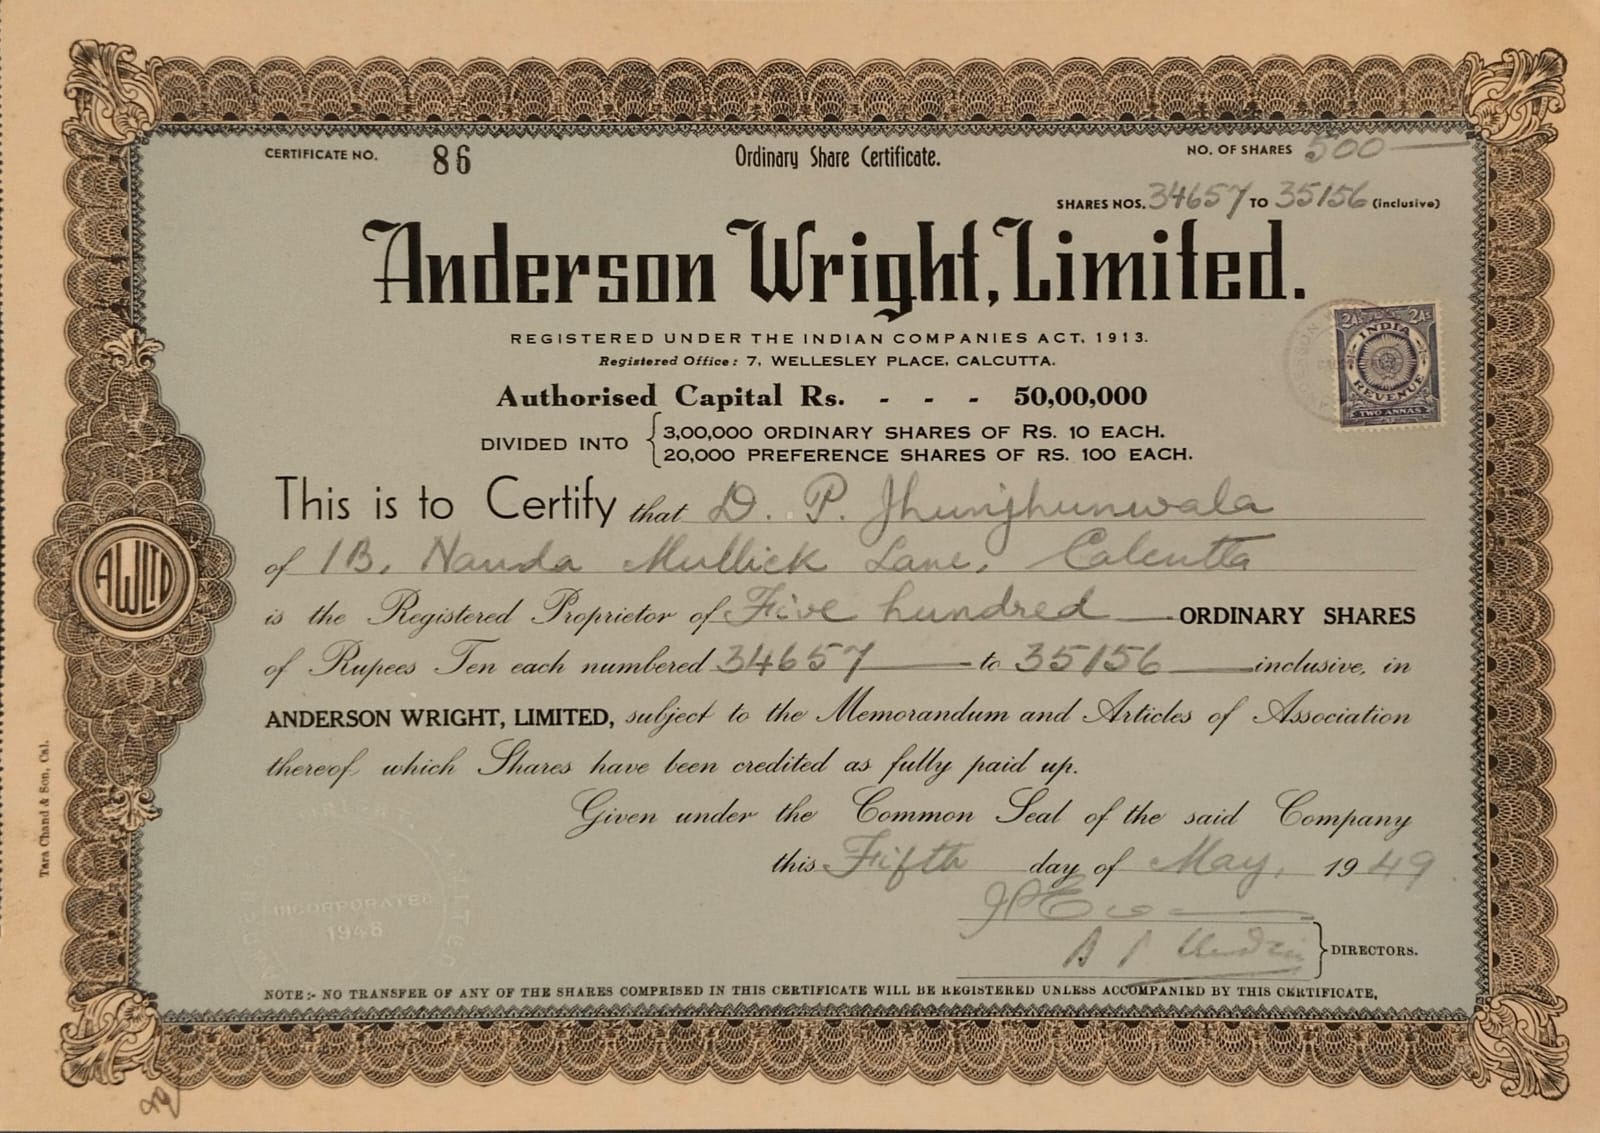 CERTIFICATE NO. 86 Ordinary Share Certificate. NO. OF SHARES 500
SHARES NOS. 34657 TO 35156 (inclusive)
Anderson Wright, Limited.
REGISTERED UNDER THE INDIAN COMPANIES ACT, 1913.
Registered Office: 7, WELLESLEY PLACE, CALCUTTA.
2As 2As
INDIA
REVENUE
TWO ANNAS
Authorised Capital Rs. - - - 50,00,000
DIVIDED INTO
3,00,000 ORDINARY SHARES OF RS. 10 EACH.
20,000 PREFERENCE SHARES OF RS. 100 EACH.
This is to Certify that D. P. Jhunjhunwala
of 1B, Nanda Mullick Lane, Calcutta
is the Registered Proprietor of Five hundred ORDINARY SHARES
of Rupees Ten each numbered 34657 to 35156 inclusive, in
ANDERSON WRIGHT, LIMITED, subject to the Memorandum and Articles of Association
thereof which Shares have been credited as fully paid up.
Given under the Common Seal of the said Company
this Fifth day of May, 1949
DIRECTORS.
NOTE:- NO TRANSFER OF ANY OF THE SHARES COMPRISED IN THIS CERTIFICATE WILL BE REGISTERED UNLESS ACCOMPANIED BY THIS CERTIFICATE,
AWLTD
Tara Chand & Son, Cal.
ANDERSON WRIGHT, LIMITED
INCORPORATED
1948